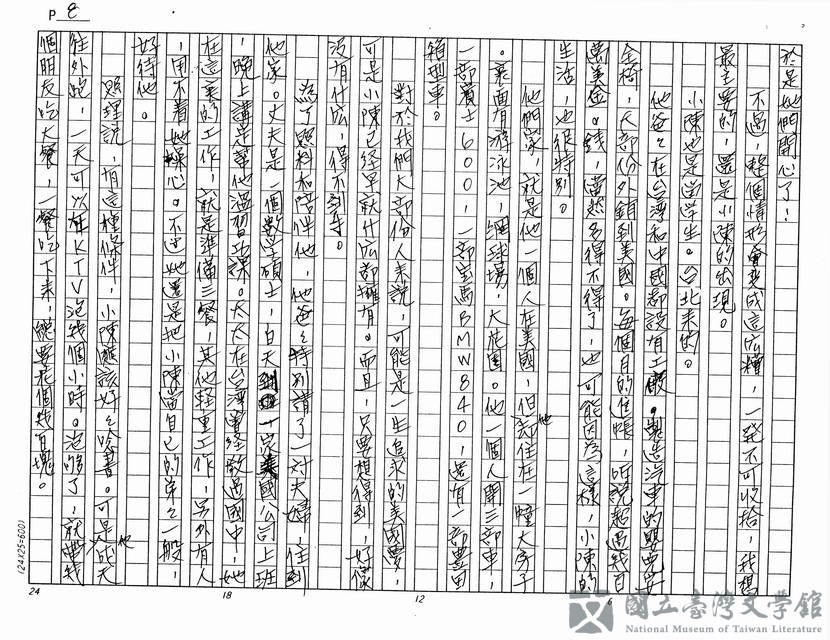 P 8
於是她們開心了！
不過，整個情形會變成這麼糟，一發不可收拾，我想
最主要的，還是小陳的出現。
小陳也是留學生。台北來的。
他爸爸在台灣和中國都設有工廠。製造汽車的嬰兒安
全椅，大部份外銷到美國。每個月的進帳，听說超過幾百
萬美金。錢，當然多得不得了，也可能因為這樣，小陳的
生活，也很特別。
他們家，就是他一個人在美國，但他卻住在一幢大房子
。裏面有游泳池，網球場，大花園。他一個人開三部車，
一部賓士600，一部宝馬BMW840，還有一部豊田
箱型車。
對於我們大部份人來說，可能是一生追求的美國夢，
可是小陳已經早就什么都擁有。而且，只要想得到，好像
沒有什么，得不到手。
為了照料和陪伴他，他爸爸特別請了一对夫婦，住到
他家。丈夫是一個數學碩士，白天到一家美國公司上班
，晚上講是幫他溫習功課。太太在台灣曾經教過國中，她
在這裏的工作，就是準備三餐，其他輕重工作，另外有人
，用不着她操心。不过她還是把小陳當自己的弟弟一般，
好好待他。
照理說，有這種條件，小陳應該好好唸書。可是他成天
往外跑，一天可以在KTV泡幾個小時。泡夠了，就與幾
個朋友吃大餐，一餐吃下來，總要花個幾百塊。
24
18
12
6
(24X25=600)
國立臺灣文學館
National Museum of Taiwan Literature